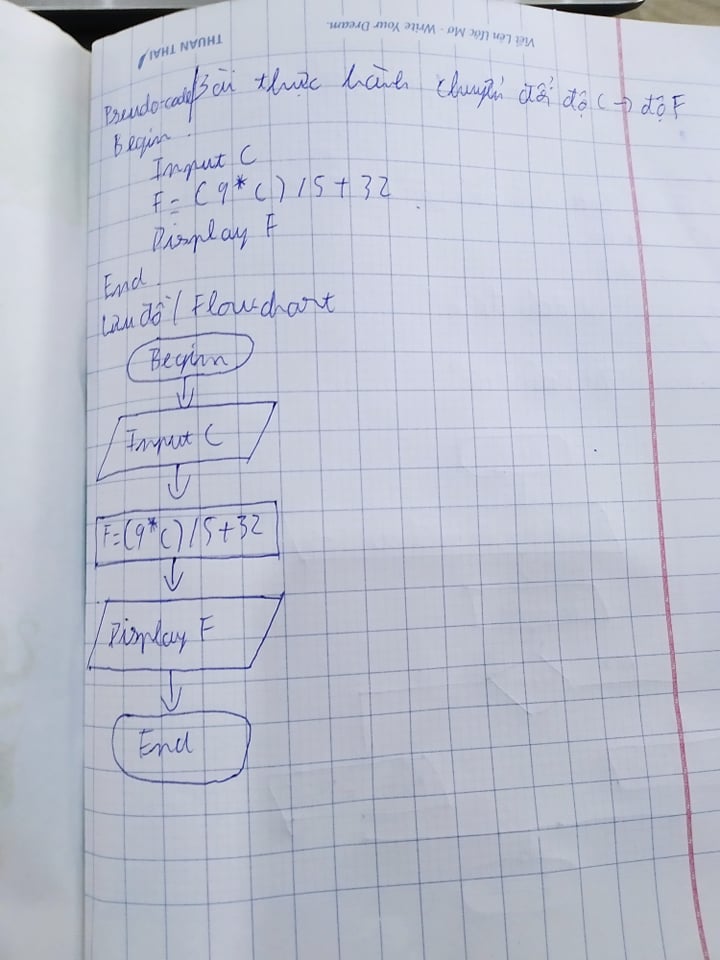 Viết Lên Ước Mơ - Write Your Dream.
THUAN THAI
Pseudo-code/Bài thực hành chuyển đổi độ C → độ F
Begin
Input C
F = (9*C)/5+32
Display F
End
Lưu đồ / Flowchart
Begin
Input C
F=(9*C)/5+32
Display F
End